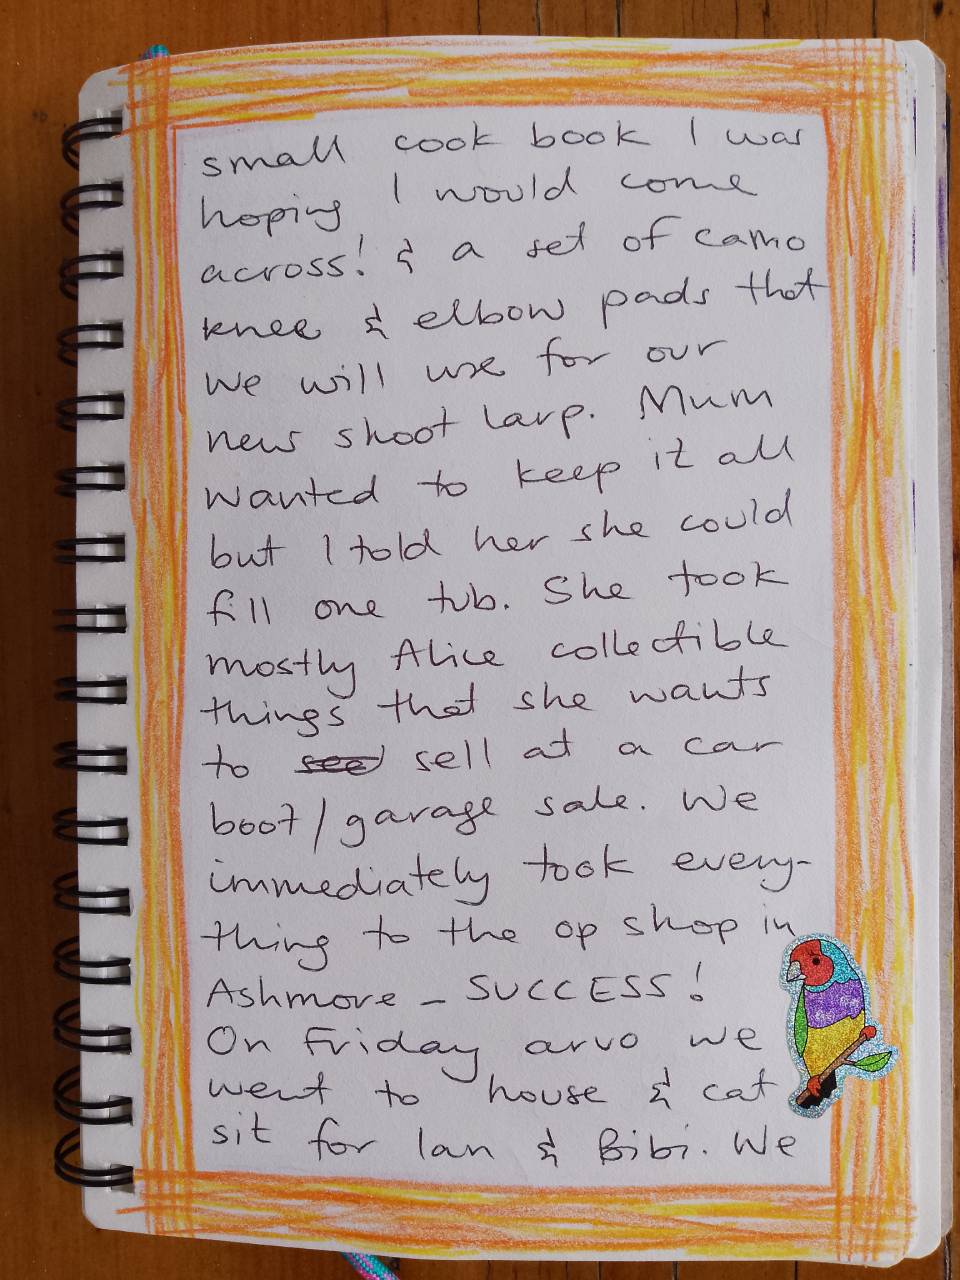 small cook book I was
hoping I would come
across! & a set of camo
knee & elbow pads that
we will use for our
new shoot larp. Mum
wanted to keep it all
but I told her she could
fill one tub. She took
mostly Alice collectible
things that she wants
to see sell at a car
boot/garage sale. We
immediately took every-
thing to the op shop in
Ashmore - SUCCESS!
On Friday arvo we
went to house & cat
sit for Ian & Bibi. We